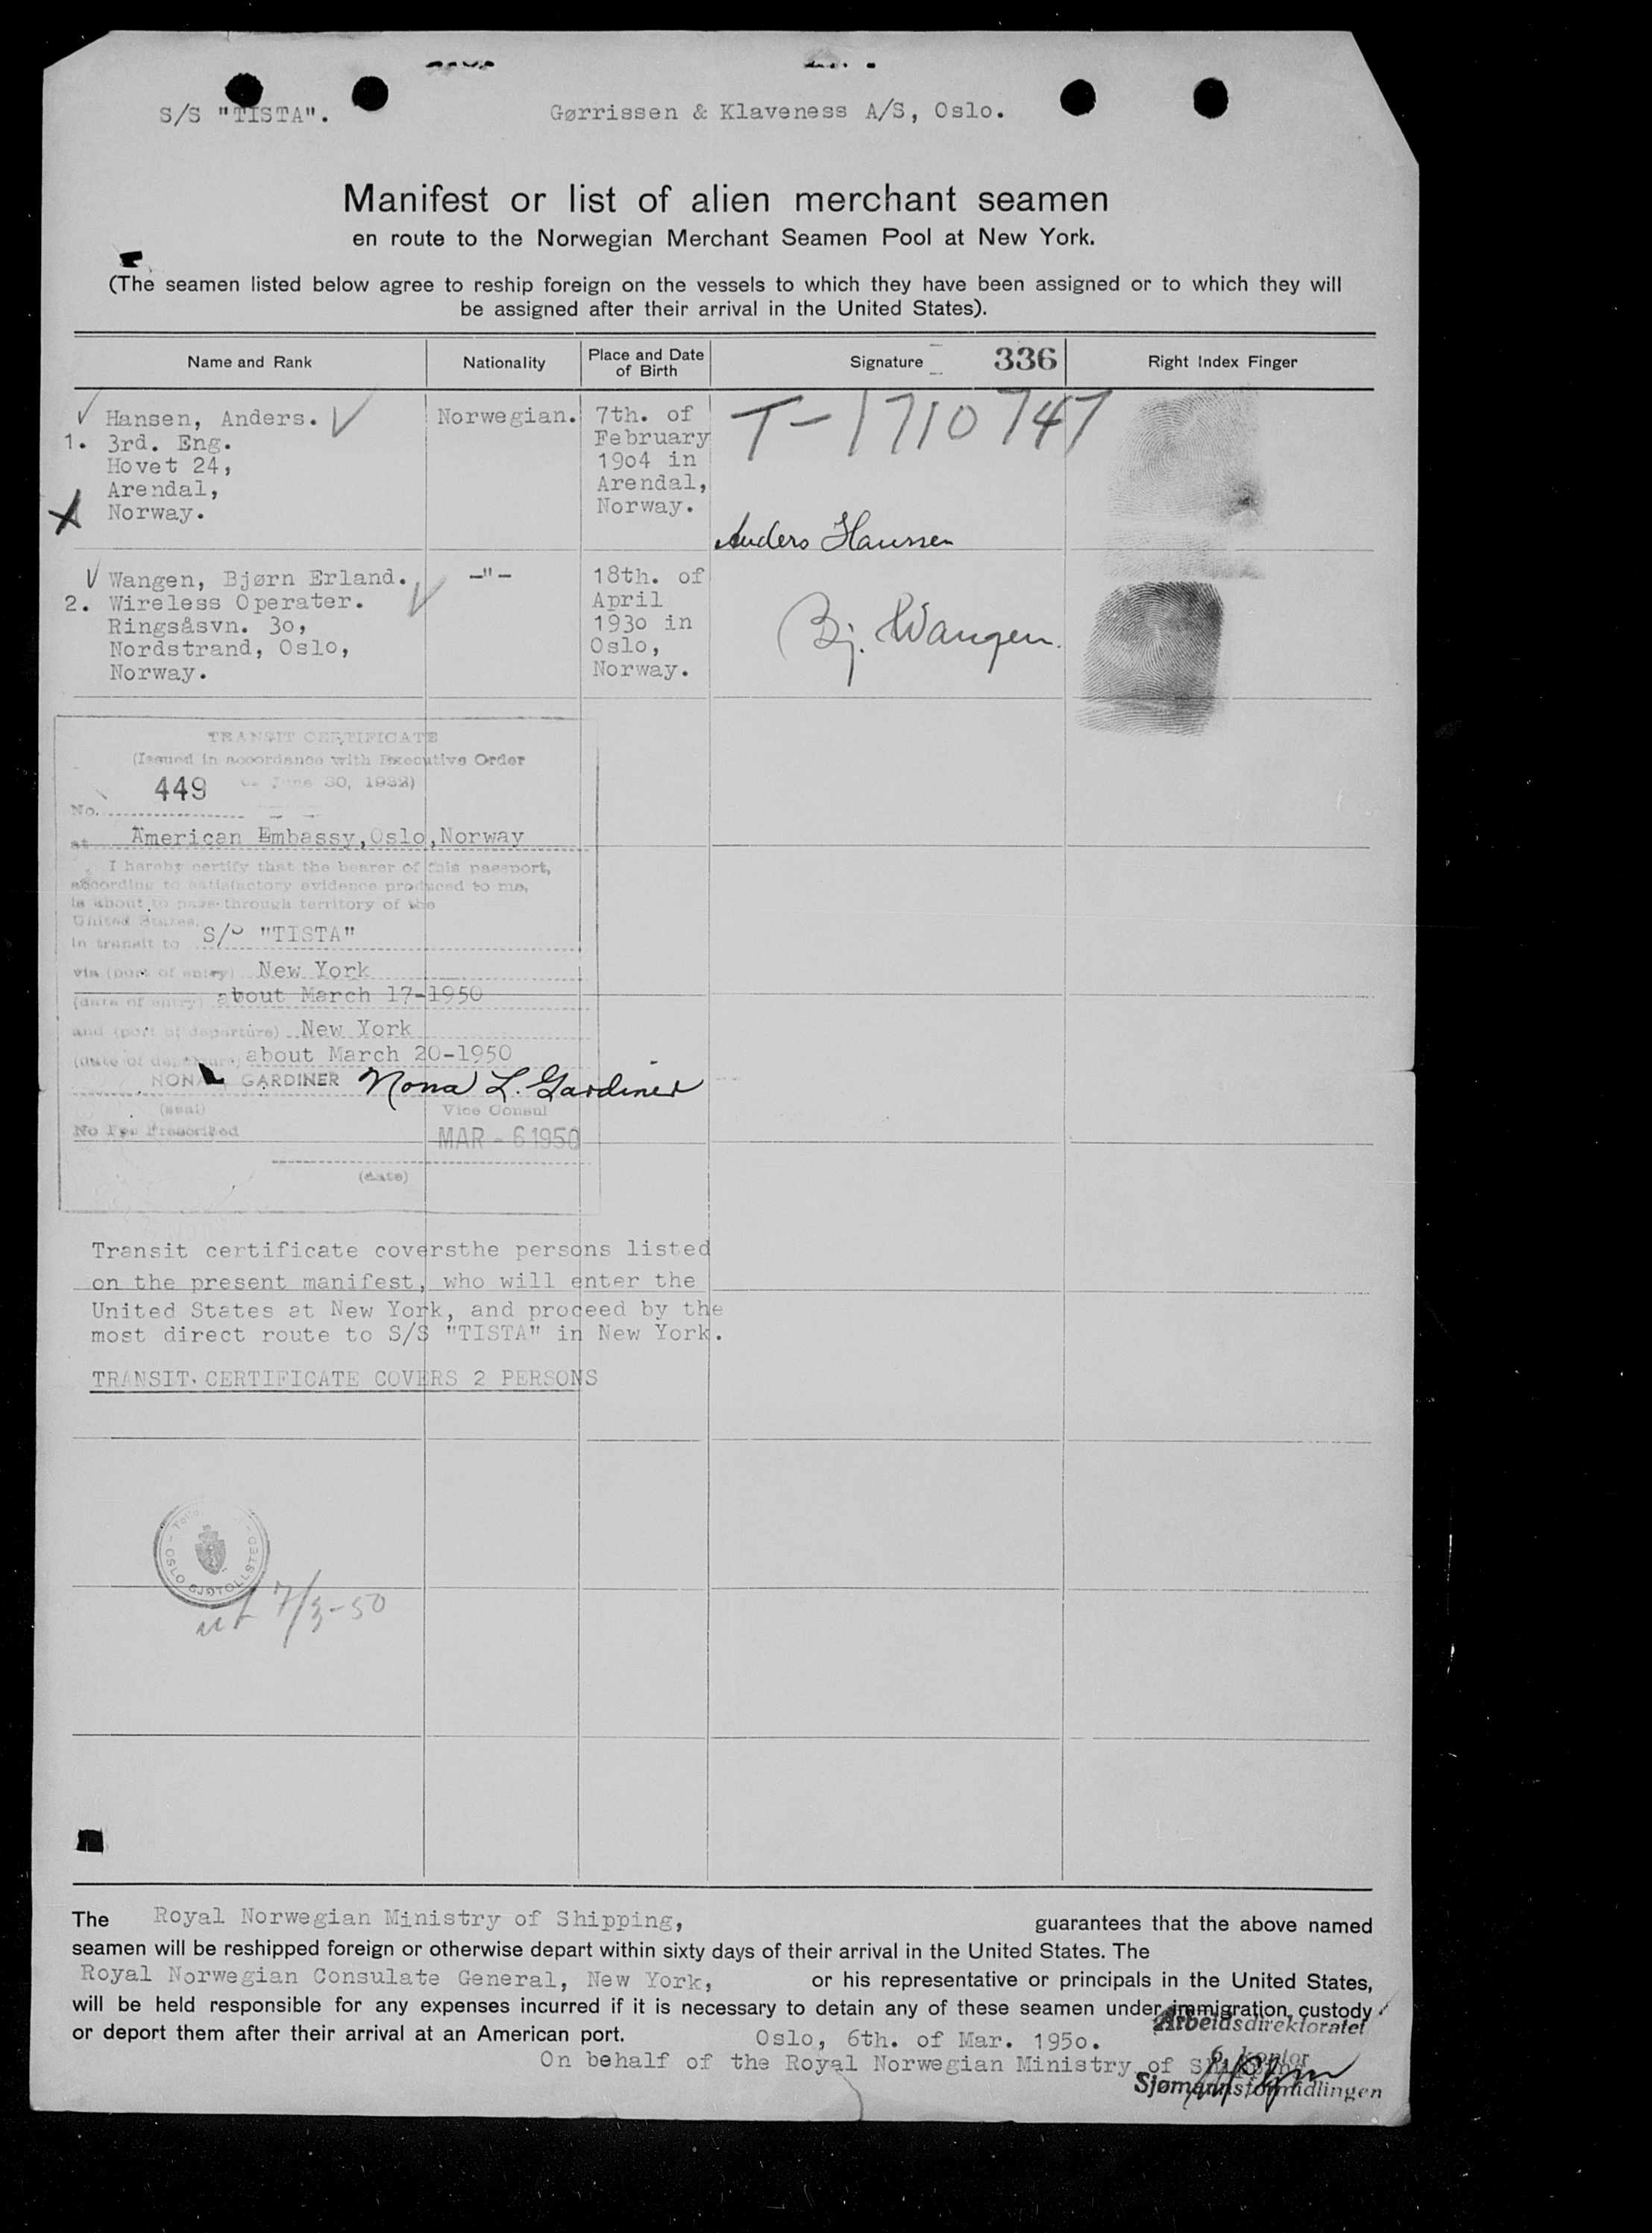 S/S "TISTA".
Gørrissen & Klaveness A/S, Oslo.
Manifest or list of alien merchant seamen
en route to the Norwegian Merchant Seamen Pool at New York.
(The seamen listed below agree to reship foreign on the vessels to which they have been assigned or to which they will
be assigned after their arrival in the United States).
Name and Rank Nationality Place and Date of Birth Signature 336 Right Index Finger
T-1710747
Hansen, Anders. Norwegian. 7th. of
1. 3rd. Eng. February
Hovet 24, 19o4 in
Arendal, Arendal,
Norway. Norway.
Anders Hanssen
Wangen, Bjørn Erland. -"- 18th. of
2. Wireless Operater. April
Ringsåsvn. 3o, 193o in
Nordstrand, Oslo, Oslo,
Norway. Norway.
Bj. Wangen.
TRANSIT CERTIFICATE
(Issued in accordance with Executive Order
June 30, 1932)
No. 449
at American Embassy,Oslo,Norway
I hereby certify that the bearer of this passport,
according to satisfactory evidence produced to me,
is about to pass through territory of the
United States,
in transit to S/S "TISTA"
via (port of entry) New York
(date of entry) about March 17-1950
and (port of departure) New York
(date of departure) about March 20-1950
NONA L GARDINER Nona L. Gardiner
(seal) Vice Consul
No Fee Prescribed MAR - 6 1950
(date)
Transit certificate coversthe persons listed
on the present manifest, who will enter the
United States at New York, and proceed by the
most direct route to S/S "TISTA" in New York.
TRANSIT CERTIFICATE COVERS 2 PERSONS
OSLO
ut 7/3-50
The Royal Norwegian Ministry of Shipping, guarantees that the above named
seamen will be reshipped foreign or otherwise depart within sixty days of their arrival in the United States. The
Royal Norwegian Consulate General, New York, or his representative or principals in the United States,
will be held responsible for any expenses incurred if it is necessary to detain any of these seamen under immigration custody
or deport them after their arrival at an American port.
Arbeidsdirektoratet
Oslo, 6th. of Mar. 195o.
6. kontor
On behalf of the Royal Norwegian Ministry of Shipping
Sjømannsformidlingen